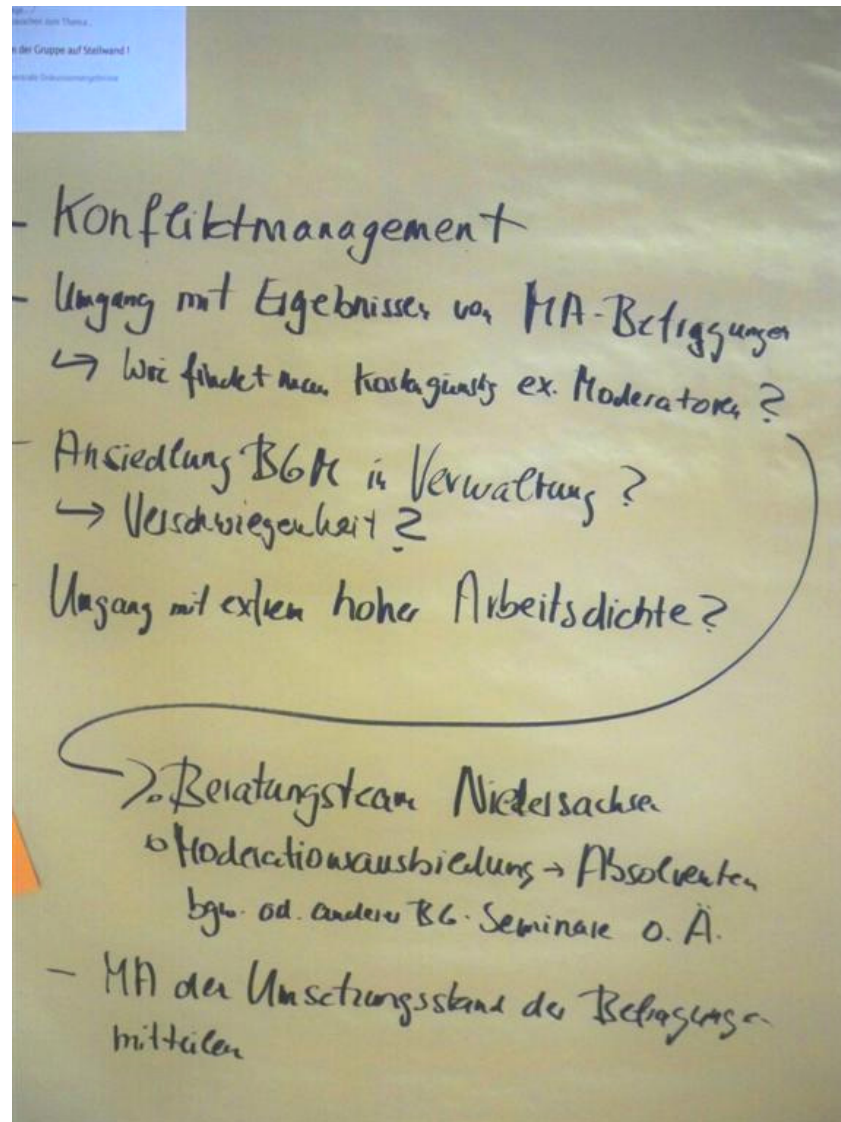 zum Thema...
der Gruppe auf Stellwand !
zentrale Diskussionsergebnisse
- Konfliktmanagement
- Umgang mit Ergebnissen von MA-Befragungen
↳ Wie findet man kostengünstig ex. Moderatoren ?
- Ansiedlung BGM in Verwaltung ?
↳ Verschwiegenheit ?
- Umgang mit extrem hoher Arbeitsdichte ?
Beratungsteam Niedersachsen
Moderationsausbildung → Absolventen
od. anderer BG-Seminare o. Ä.
- MA den Umsetzungsstand der Befragungen
mitteilen